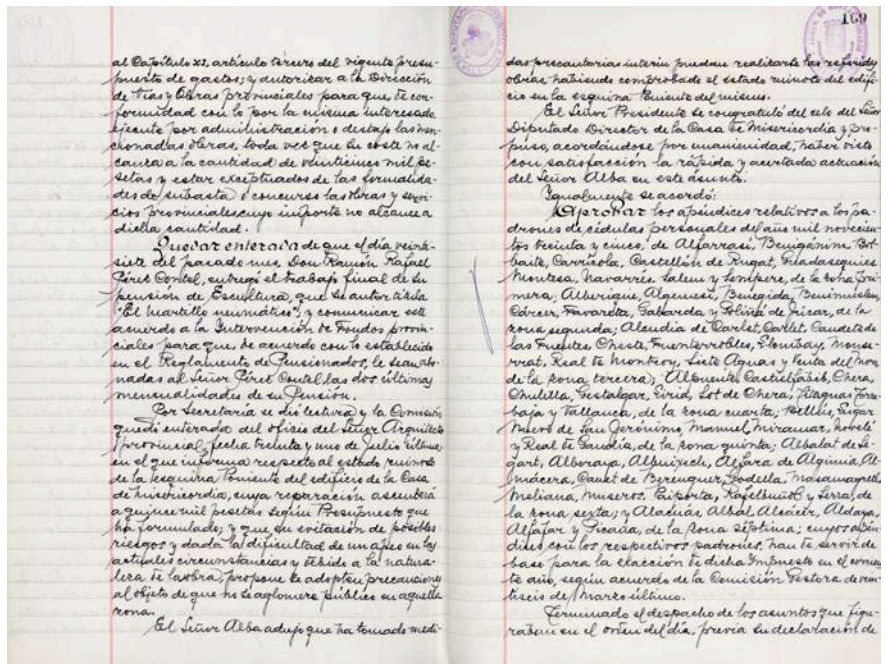 al Capítulo XI, artículo tercero del vigente presu-
puesto de gastos; y autorizar a la Dirección
de Vías y Obras provinciales para que, de con-
formidad con lo por la misma interesado,
ejecute por administración o destajo las men-
cionadas obras, toda vez que su coste no al-
canza a la cantidad de veinticinco mil pe-
setas y estar exceptuados de las formalida-
des de subasta o concurso las obras y servi-
cios provinciales cuyo importe no alcance a
dicha cantidad.
Quedar enterada de que el día veinte-
siete del pasado mes, Don Ramón Rafael
Pérez Contel, entregó el trabajo final de su
pensión de Escultura, que su autor titula
"El martillo neumático"; y comunicar este
acuerdo a la Intervención de Fondos provin-
ciales para que, de acuerdo con lo establecido
en el Reglamento de Pensionados, le sean abo-
nadas al Señor Pérez Contel las dos últimas
mensualidades de su Pensión.
Por Secretaría se dió lectura y la Comisión
quedó enterada del oficio del Señor Arquitecto
provincial, fecha treinta y uno de Julio último
en el que informa respecto al estado ruinoso
de la esquina Poniente del edificio de la Casa
de Misericordia, cuya reparación ascenderá
a quince mil pesetas según Presupuesto que
ha formulado; y que en evitación de posibles
riesgos y dada la dificultad de un apeo en las
actuales circunstancias y debido a la natura-
leza de la obra, propone se adopten precauciones
al objeto de que no se aglomere público en aquella
zona.
El Señor Alba adujo que ha tomado medi-
169
das precautorias interin puedan realizarse las referidas
obras, habiendo comprobado el estado ruinoso del edifi-
cio en la esquina Poniente del mismo.
El Señor Presidente se congratuló del celo del Señor
Diputado Director de la Casa de Misericordia y pro-
puso, acordándose por unanimidad, haber visto
con satisfacción la rápida y acertada actuación
del Señor Alba en este asunto.
Igualmente se acordó:
Aprobar los apéndices relativos a los pa-
drones de cédulas personales del año mil novecien-
tos treinta y cinco, de Alfarrasí, Benigánim, Bel-
baite, Carrícola, Castellón de Rugat, Guadasequies
Montesa, Navarrés, Salem y Sempere, de la zona pri-
mera; Alberique, Algemesí, Benegida, Benimuslem,
Cárcer, Favareta, Gabarda y Poliñá de Júcar, de la
zona segunda; Alcudia de Carlet, Carlet, Caudete de
las Fuentes, Cheste, Fuenterrobles, Llombay, Monse-
rrat, Real de Montroy, Siete Aguas y Venta del Moro,
de la zona tercera; Alpuente, Castielfabib, Chera,
Chulilla, Gestalgar, Loriguilla, Sot de Chera, Titaguas, Torre-
baja y Vallanca, de la zona cuarta; Bellús,
Nuevo de San Jerónimo, Manuel, Miramar, Novelé
y Real de Gandía, de la zona quinta; Albalat de Se-
gart, Alboraya, Albuixech, Alfara de Algimia, Al-
mácera, Canet de Berenguer, Godella, Masamagrell
Meliana, Museros, Paiporta, Rafelbuñol y Serra, de
la zona sexta; y Alacuás, Albal, Alcácer, Aldaya,
Alfafar y Picaña, de la zona séptima; cuyos apén-
dices, con los respectivos padrones, han de servir de
base para la exacción de dicho Impuesto en el corrien-
te año, según acuerdo de la Comisión Gestora de vein-
tiseis de Marzo último.
Terminado el despacho de los asuntos que figu-
raban en el orden del día, previa su declaración de